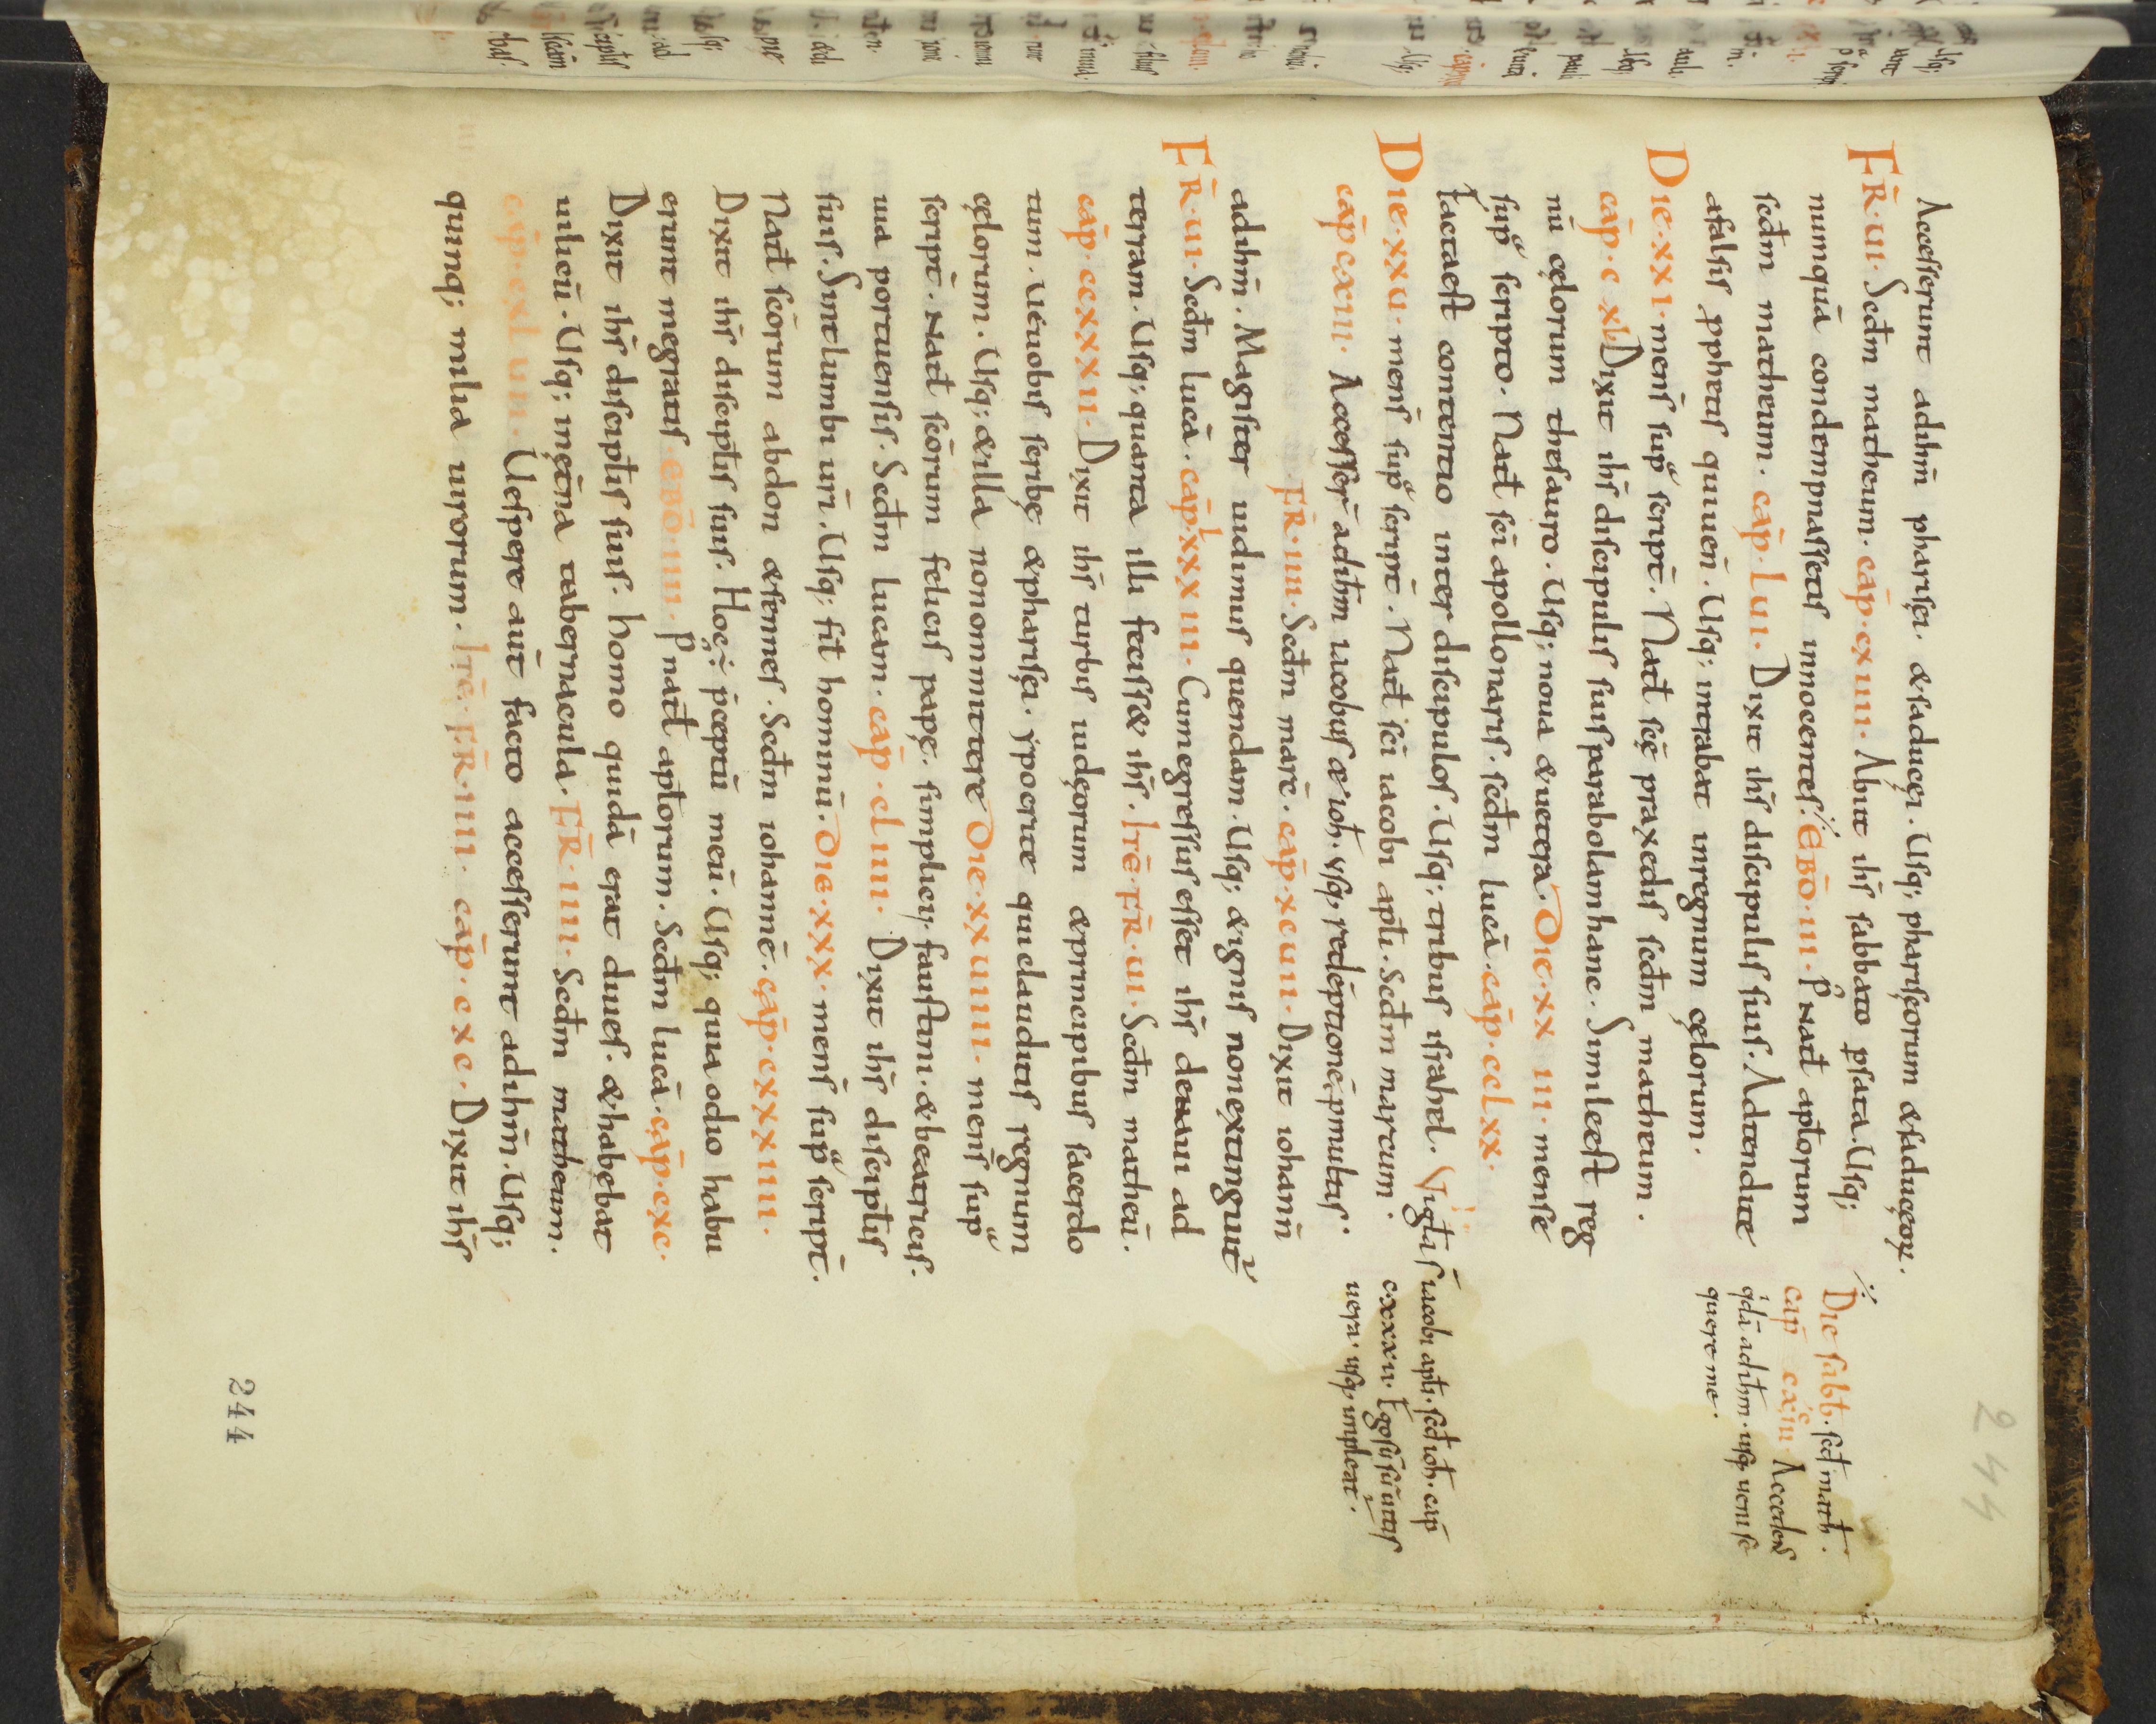 Accesserunt adihm̄ pharisęi. & saducęi. Usq; pharisęorum & saducęoꝝ.
FR̄. VI. Scd̄m matheum. cap̄. cxiiii. Abiit ih̄s sabbato ꝑsata. Usq;
numquā condempnassetis innocentes. EBD̄. III. P̄ nat̄ aptōrum
scd̄m matheum. cap̄. lvi. Dixit ih̄s discipulis suis. Adtendite
afalsis ꝓphetis quiuen̄. Usq; intrabat inregnum cęlorum.
DIE. XXI. mens̄ sup̄ script̄. Nat̄ scē praxedis scd̄m matheum.
cap̄. cxl. Dixit ih̄s discipulis suis parabolam hanc. Simileest reg
nū cęlorum thesauro. Usq; noua & uetera. DIE. XXIII. mense
sup̄ scripto. Nat̄ sci apollonaris. scd̄m lucā. cap̄. cclxx.
Factaest contentio inter discipulos. Usq; tribus israhel. Vigl̄i s̄ iacobi apl̄i. scd̄ ioh̄. cap̄
cxxxxvi. Ego sū uitis
uera. usq; impleat.
DIE. XXV. mens̄ sup̄ script̄. Nat̄ sci iacobi apl̄i. Scd̄m marcum.
cap̄ cxiii. Accesser̄ adihm̄ iacobus & ioh̄. usq; redēptionē ꝓmultis.
FR̄. IIII. Scd̄m marc̄. cap̄. xcvii. Dixit iohann̄
adihm̄. Magister uidimus quendam. Usq; & ignis nonextinguit̄
FR̄. VI. Scd̄m lucā. cap̄. lxxxiii. Cumegressus esset ih̄s denaui ad
terram. Usq; quanta illi fecisset ih̄s. Itē. FR̄. VI. Scd̄m matheū.
cap̄. ccxxxii. Dixit ih̄s turbis iudęorum & principibus sacerdo
tum. Uęuobis scribę & pharisęi. ypocritę quiclauditis regnum
cęlorum. Usq; & illa nonommittere DIE. XXVIIII. mens̄ sup̄
script̄. Nat̄ scōrum felicis papę. simplicii. faustini. & beatricis.
uia portuensis. Scd̄m lucam. cap̄. cliiii. Dixit ih̄s disciptis
suis. Sintlumbi urī. Usq; fil̄ hominū. DIE. XXX. mens̄ sup̄ script̄.
Nat̄ scōrum abdon & sennes. Scd̄m iohannē. cap̄. cxxxiiii.
Dixit ih̄s disciptis suis. Hoc ÷ p̄ceptū meū. Usq; quia odio habu
erunt megratis EBD̄. IIII. P̄ nat̄ aptōrum. Scd̄m lucā. cap̄. cxc.
Dixit ih̄s disciptis suis. Homo quidā erat diues. & habebat
uilicū. Usq; inętna tabernacula. FR̄. IIII. Scd̄m matheum.
cap̄. cxlvii. Uespere aūt facto accesserunt adihm̄. Usq;
quinq; milia uirorum. Itē. FR̄. IIII. cap̄. cxc. Dixit ih̄s
Die sabb̄. scd̄ math̄.
cap̄ cxciii Accedens
qdā adihm̄. usq; ueni se
quere me.
244
244